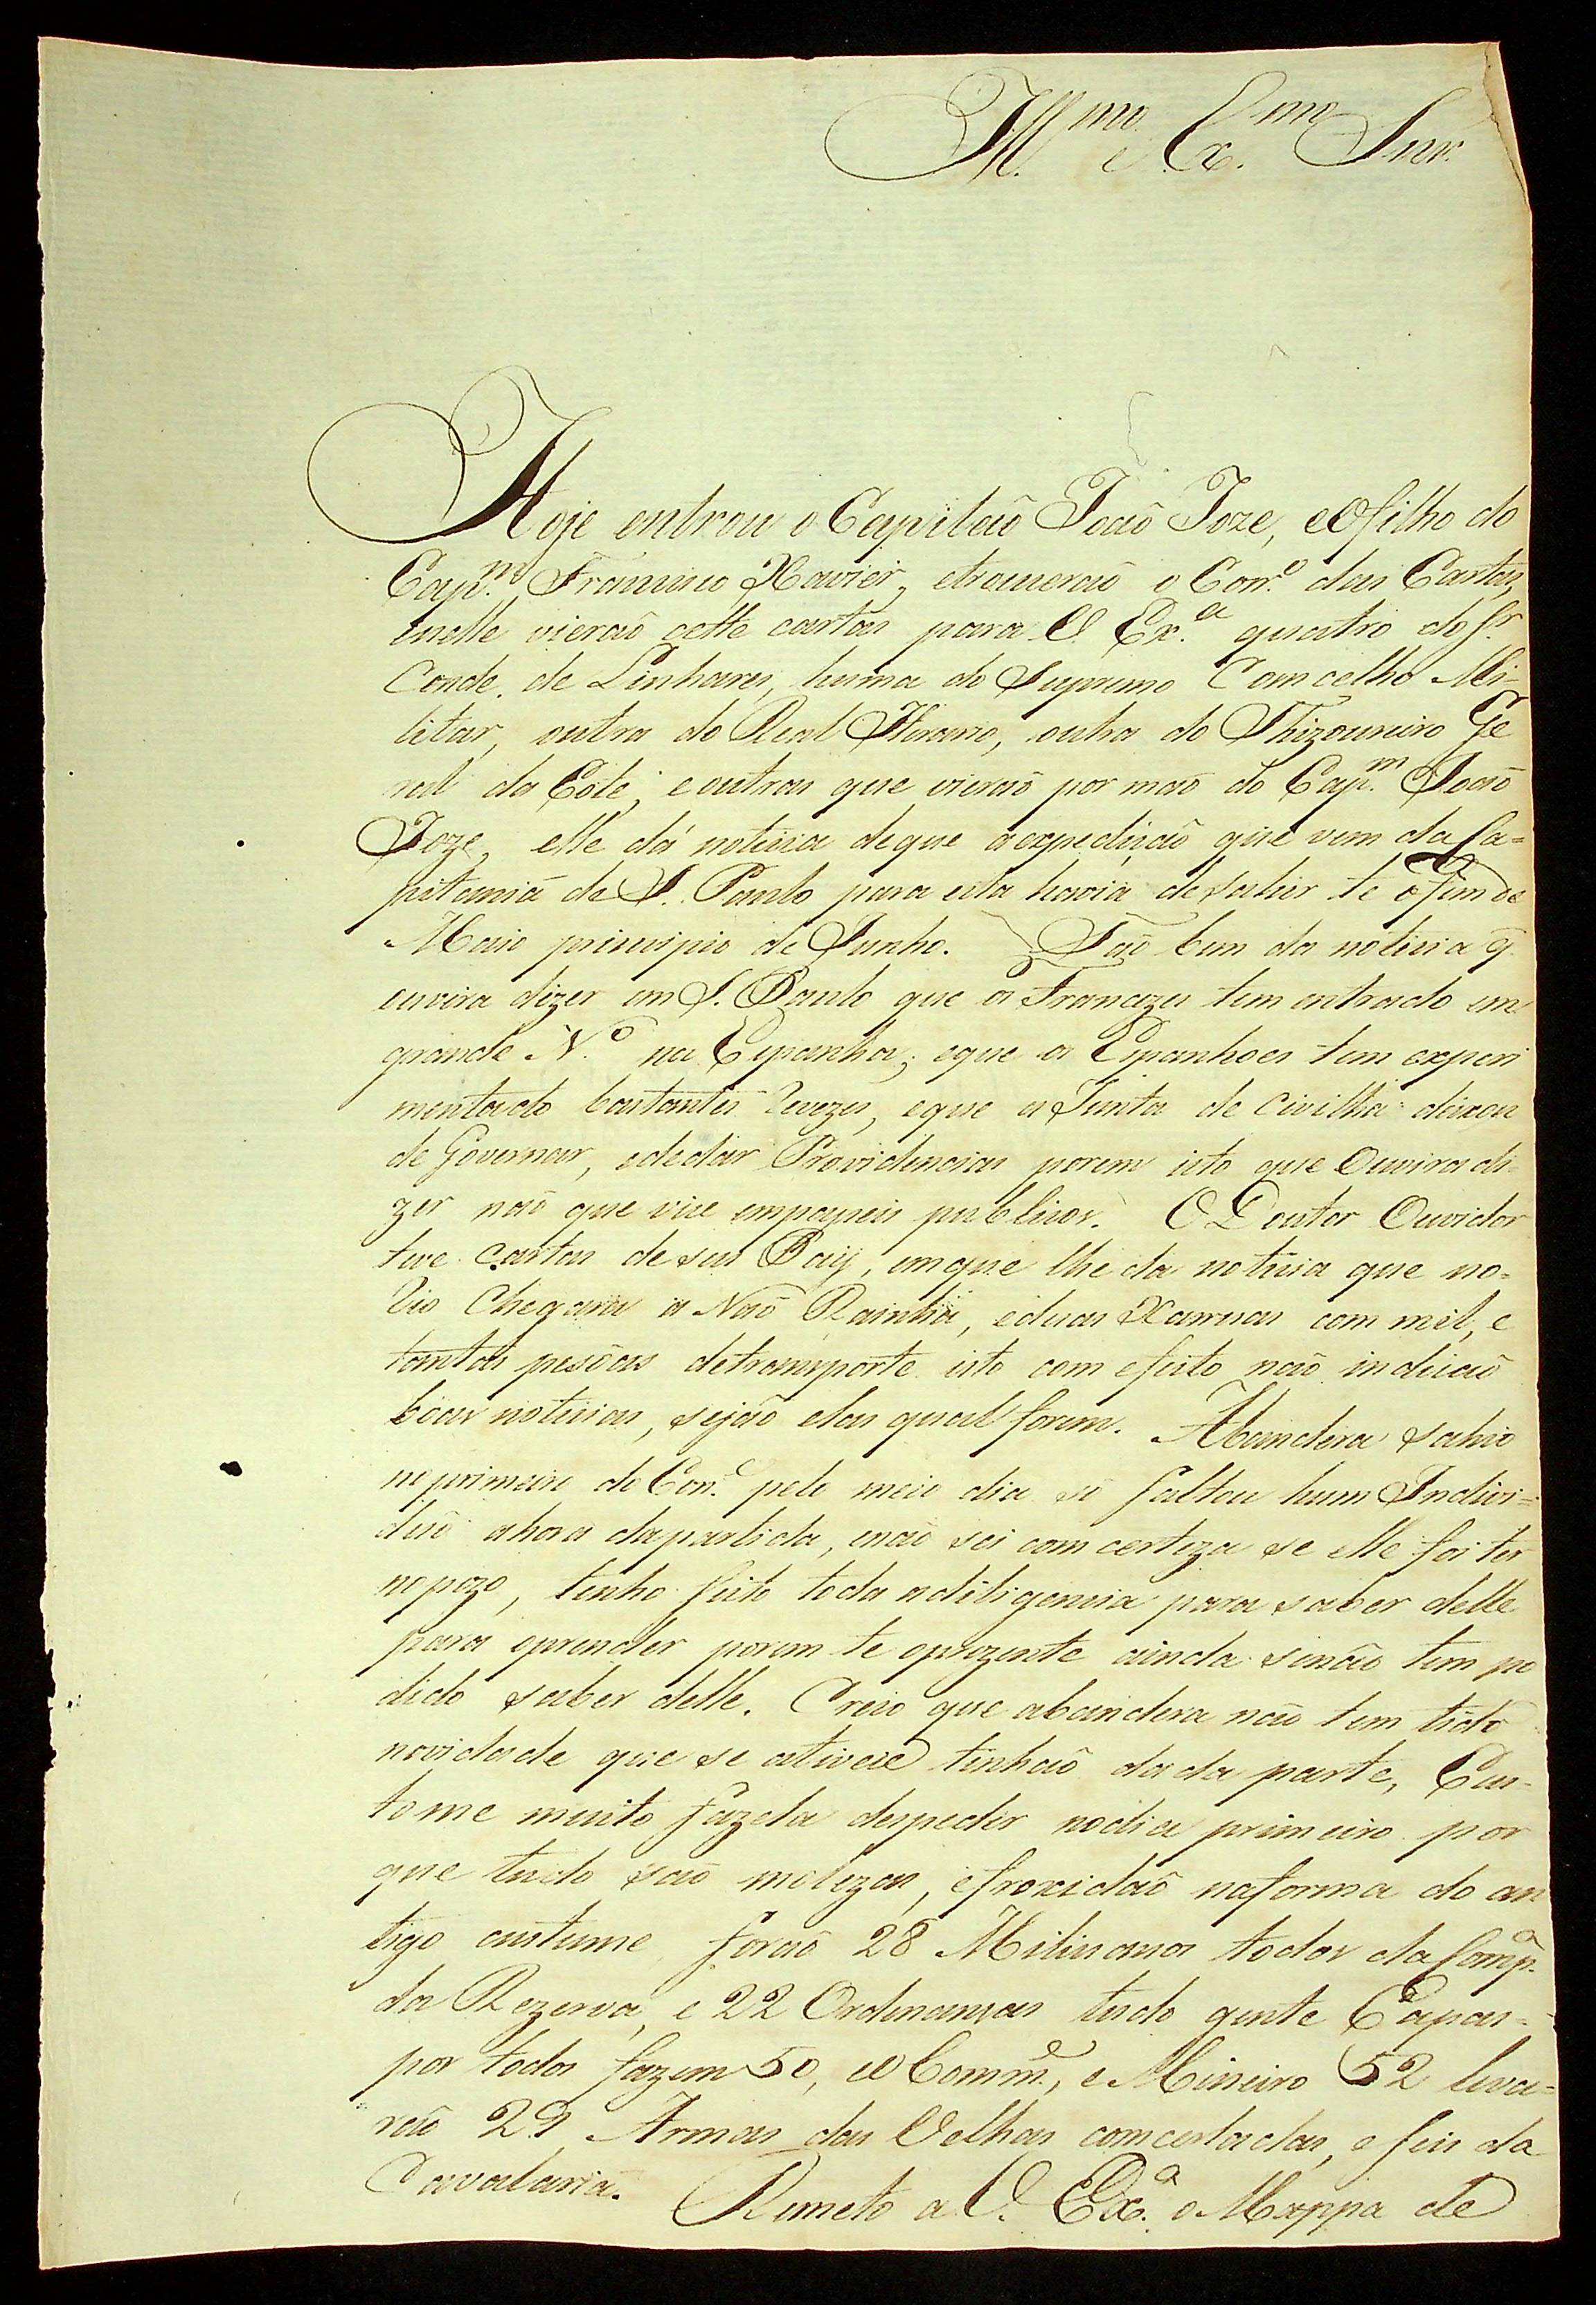 Ill.mo e Ex.mo Snr.
Hoje entrou o Capitaõ Joaõ Joze, e O filho do
Cap.m Francisco Xavier, etrouceraõ o Corr.o das Cartas,
enelle vieraõ cette cartas para V. Ex.a quatro do Sr.
Conde de Linhares, huma do Supremo Comcelho Mi-
litar, outra do Real Herario, outra do Thizoureiro Ge
ral da Côrte, e outras que vieraõ por maõ do Cap.m Joaõ
Joze, elle dá noticia deque aexpediçaõ que vem da Ca=
pitania de S. Paulo para esta havia desahir te o fim de
Maio principio de Junho. Taõ bem da noticia q̃
ouvira dizer em S. Paulo que os Francezes tem entrado em
grande N.o na Espanha; eque os Espanhoes tem experi
mentado bastantes Revezes, eque a Junta de Civilha deixou
de Governar, ededar Providencias porem isto que Ouvira di
zer naõ que vice empapeis publicos. O Doutor Ouvidor
teve cartas de seu Pay, emque lhe da noticia que no
Rio Chegara a Náo Rainha, eduas Xarruas com mil, e
tantas pesoas detransporte isto com efeito naõ indicaõ
boas noticias, sejaõ elas qual forem. Abandera sahio
noprimeiro do Corr.e pelo meio dia só faltou hum Indivi=
duo ahora dapartida, enaõ sei com certeza se elle foi ter
nopozo, tenho feito toda adiligencia para saber delle
para oprender porem te oprezente ainda senaõ tem po
dido saber delle. Creio que abandera naõ tem tido
novidade que se ativece tinhaõ dada parte, Cus-
tome muito fazela despedir nodia primeiro por
que tudo saõ molezas, efroxidaõ naforma do an
tigo custume, foraõ 28 Milicianos todos da Comp.a
da Rezerva, e 22 Ordenanças tudo gente Capas=
por todos fazem 50, eO Comm.e, e Mineiro 52 leva=
raõ 29 Armas das Velhas comcertadas, e seis da
Cavalaria. Remeto a V. Ex.a o Mappa de